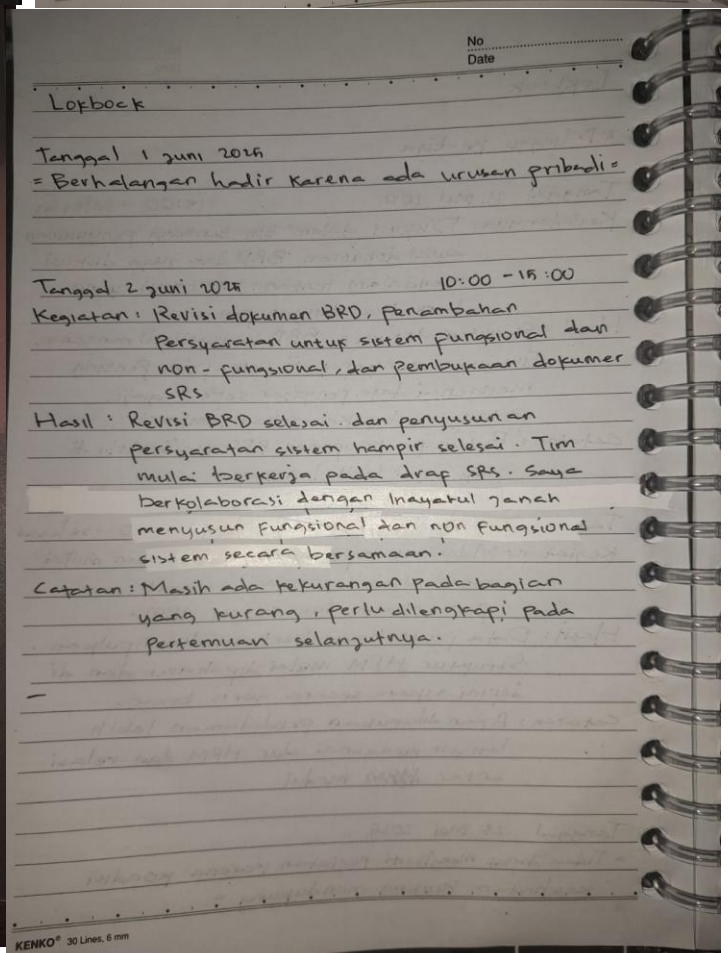 No
Date
Lokbock
Tanggal 1 Juni 2025
= Berhalangan hadir karena ada urusan pribadi =
Tanggal 2 Juni 2025 10:00 - 15:00
Kegiatan : Revisi dokumen BRD, penambahan
Persyaratan untuk sistem fungsional dan
non-fungsional, dan pembukaan dokumen
SRS
Hasil : Revisi BRD selesai. dan penyusunan
persyaratan sistem hampir selesai. Tim
mulai berkerja pada draf SRS. Saya
berkolaborasi dengan Inayatul Janah
menyusun Fungsional dan non Fungsional
sistem secara bersamaan.
Catatan : Masih ada kekurangan pada bagian
yang kurang, perlu dilengkapi pada
pertemuan selanjutnya.
KENKO® 30 Lines, 6 mm